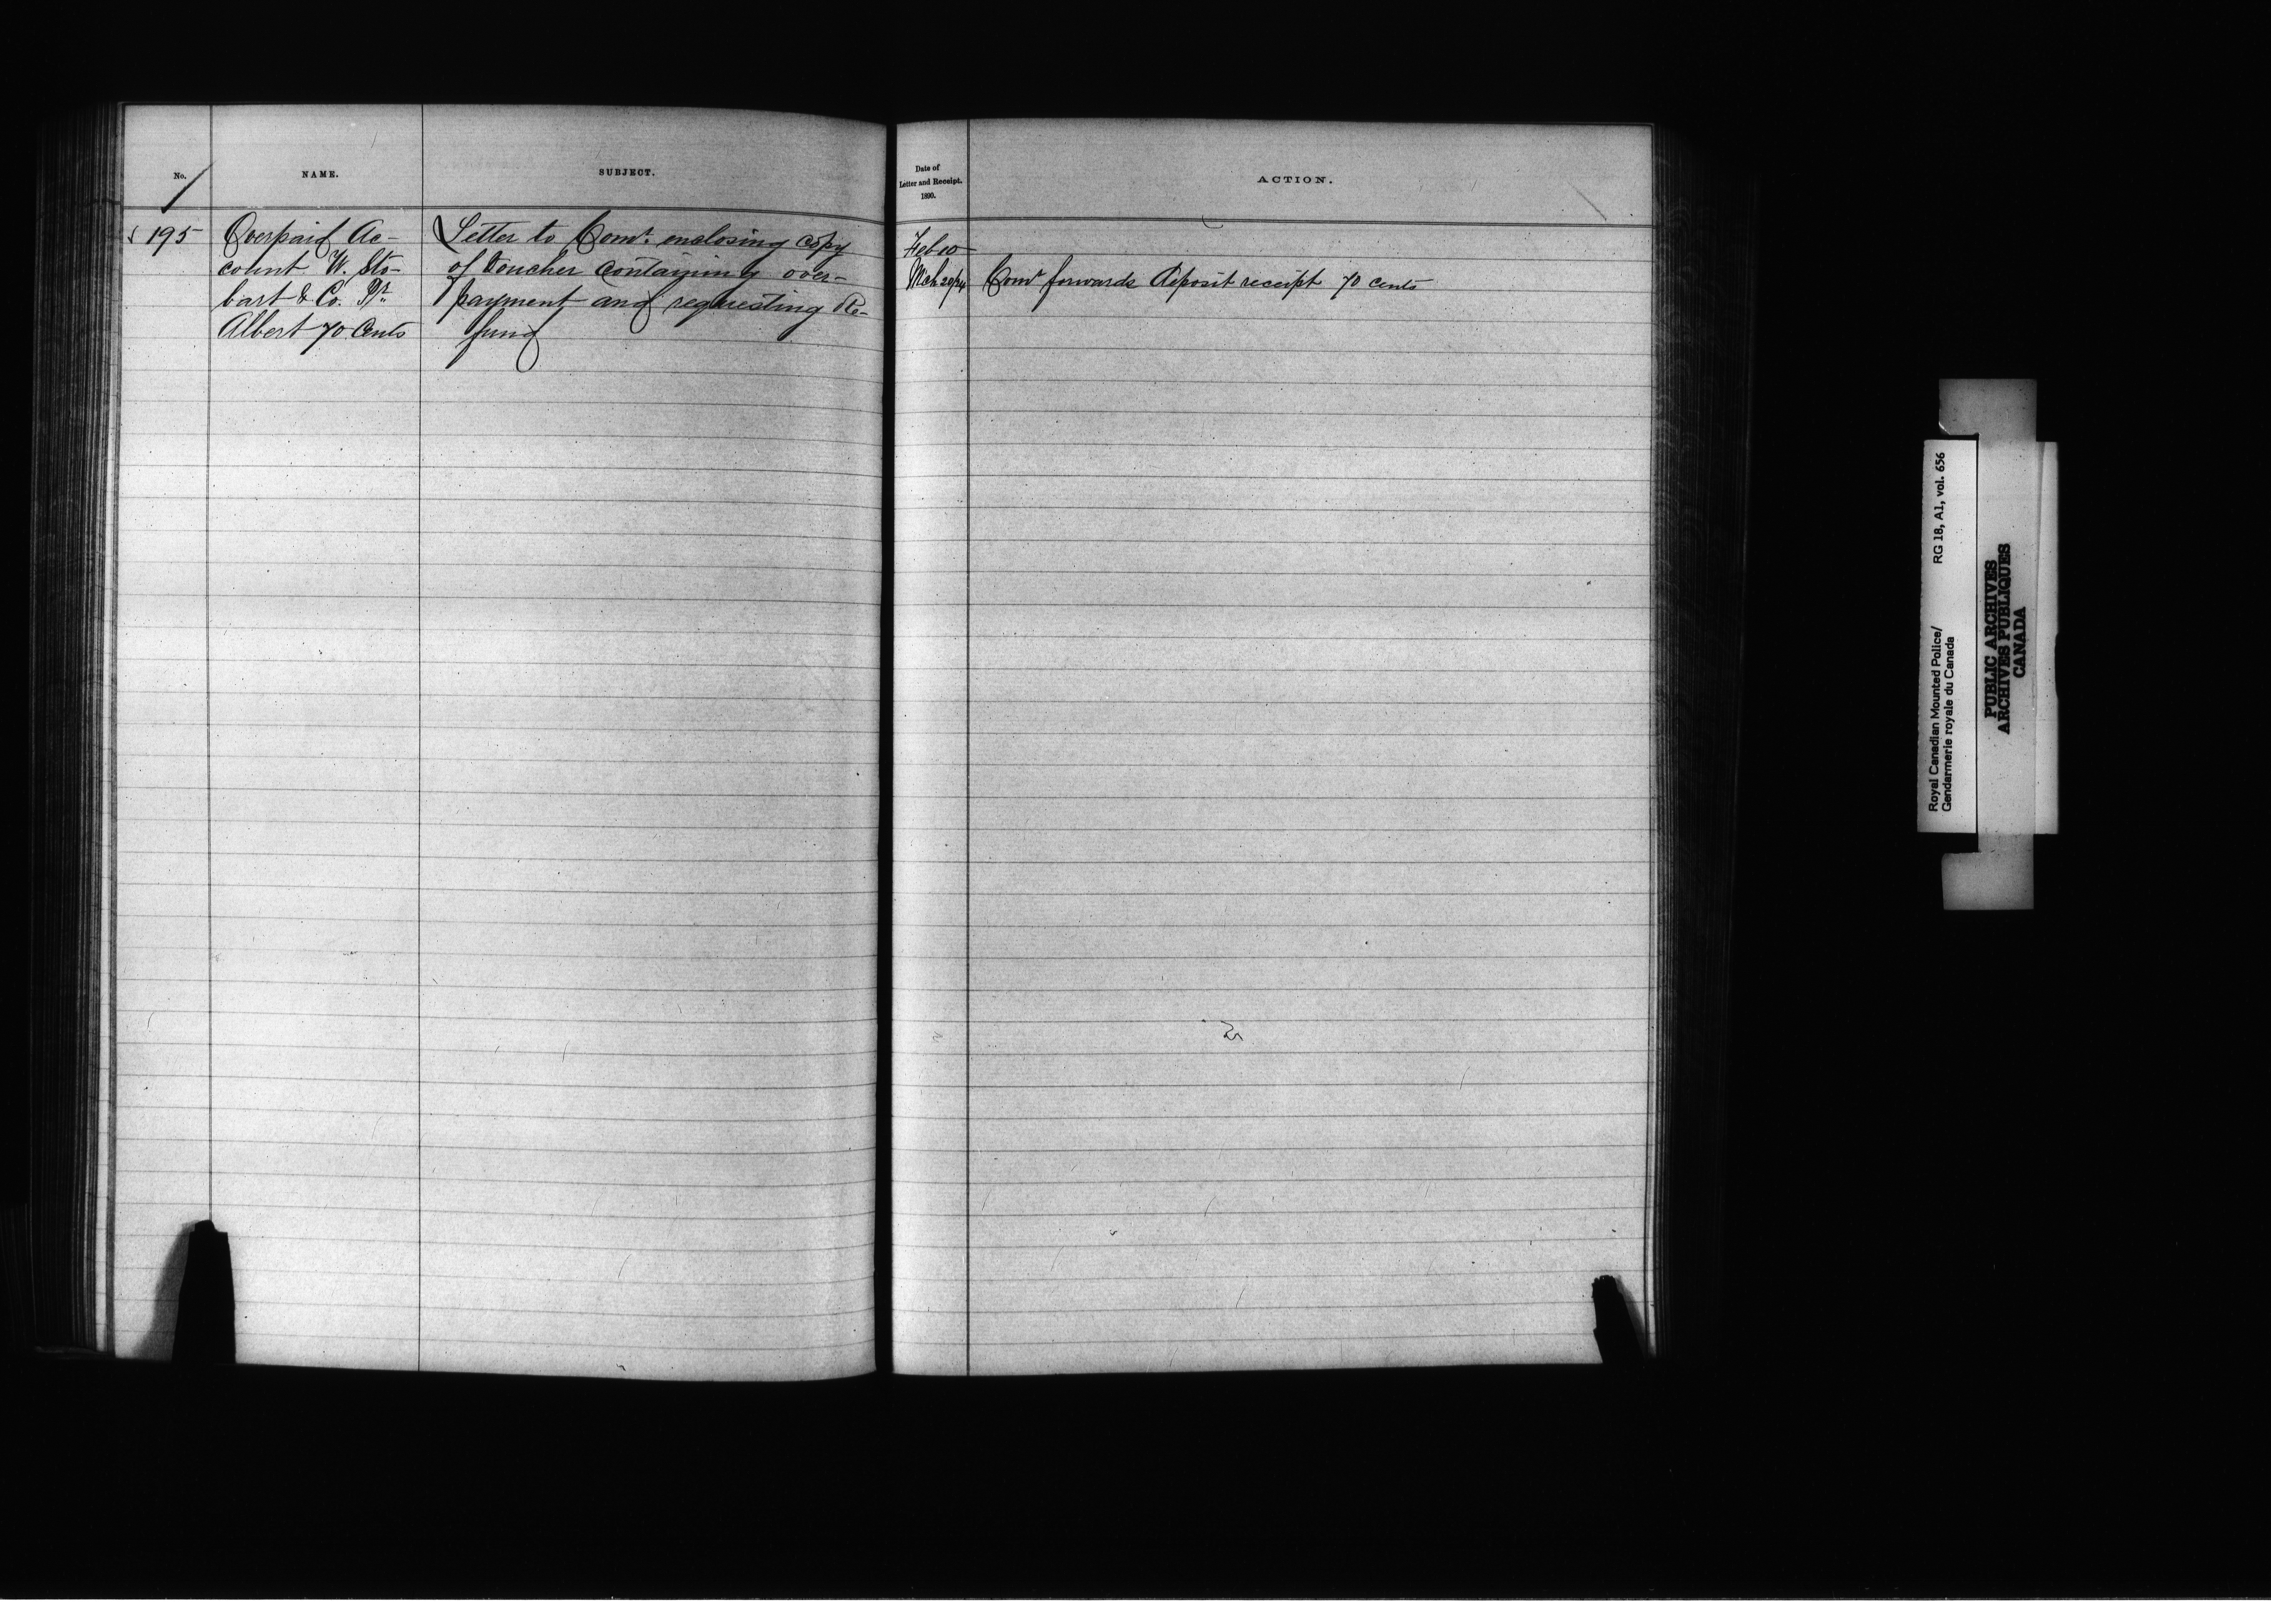 No.
NAME.
SUBJECT.
195
Overpaid Ac-
count W. Sto-
bart & Co. Pr.
Albert 70 Cents
Letter to Comr. enclosing copy
of Voucher containing over-
payment and requesting Re-
fund
Date of
Letter and Receipt.
1890.
ACTION.
Feb 10
Mch 20/24 Comr forwards Deposit receipt 70 cents
Royal Canadian Mounted Police/ RG 18, A1, vol. 656
Gendarmerie royale du Canada
PUBLIC ARCHIVES
ARCHIVES PUBLIQUES
CANADA